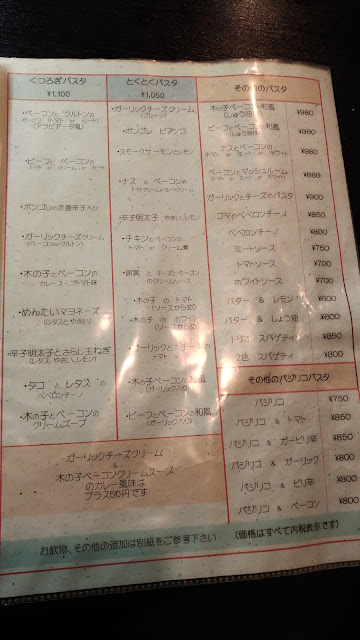 くつろぎパスタ
¥1,100
・ベーコンと クルトンの
(アラビアータ風)
・ビーフと ベーコンの
トマト or クリーム or ミート
・ボンゴレの赤唐辛子入り
・ガーリックチーズクリーム
・木の子とベーコンの
カレースープトマト味
・めんたいマヨネーズ
(レタスとやさい)
・辛子明太子とさらし玉ねぎ
(レタス やさい レモン)
・タコ と レタス の
ペペロンチーノ
・木の子とベーコンの
クリームスープ
とくとくパスタ
¥1,050
・ガーリックチーズクリーム
(プレーン)
・ボンゴレ ビアンコ
・スモークサーモンとレモン
・ナス と ベーコンの
トマトクリームorミートクリーム
・辛子明太子 やさい レモン
・チキンとベーコンの
トマト or クリーム煮
・ チーズとベーコン
のクリームソース
・木の子 の トマト
(ソースからめ)
・木の子 の ホワイト
(ソースからめ)
・ガーリックと
トマト or
・木の子とベーコンの和風
(ガーリック入り)
・ビーフとベーコンの和風
(ガーリック入り)
その他のパスタ
木の子ベーコンの和風 ¥980
(しょう油味)
ビーフとベーコンの和風 ¥980
(しょう油味)
ナスとベーコンの ¥980
(トマト or ミート or ホワイト)
ベーコンとマッシュルーム ¥885
(トマト or ミート or ホワイト)
ガーリックとチーズのパスタ ¥900
ゴマのペペロンチーノ ¥850
ペペロンチーノ ¥800
ミートソース ¥750
トマトソース ¥700
ホワイトソース ¥700
バター & レモン ¥600
バター & しょう油 ¥600
トリオ スパゲティ ¥850
2色 スパゲティ ¥800
その他のバジリコパスタ
バジリコ ¥750
バジリコ & トマト ¥850
バジリコ & ガーピリ辛 ¥850
バジリコ & ガーリック ¥800
バジリコ & ピリ辛 ¥800
バジリコ & ベーコン ¥800
ガーリックチーズクリーム
&
木の子ベーコンクリームスープ
のカレー風味は
プラス50円です
お飲物、その他の追加は別紙をご参考下さい (価格はすべて内税表示です)